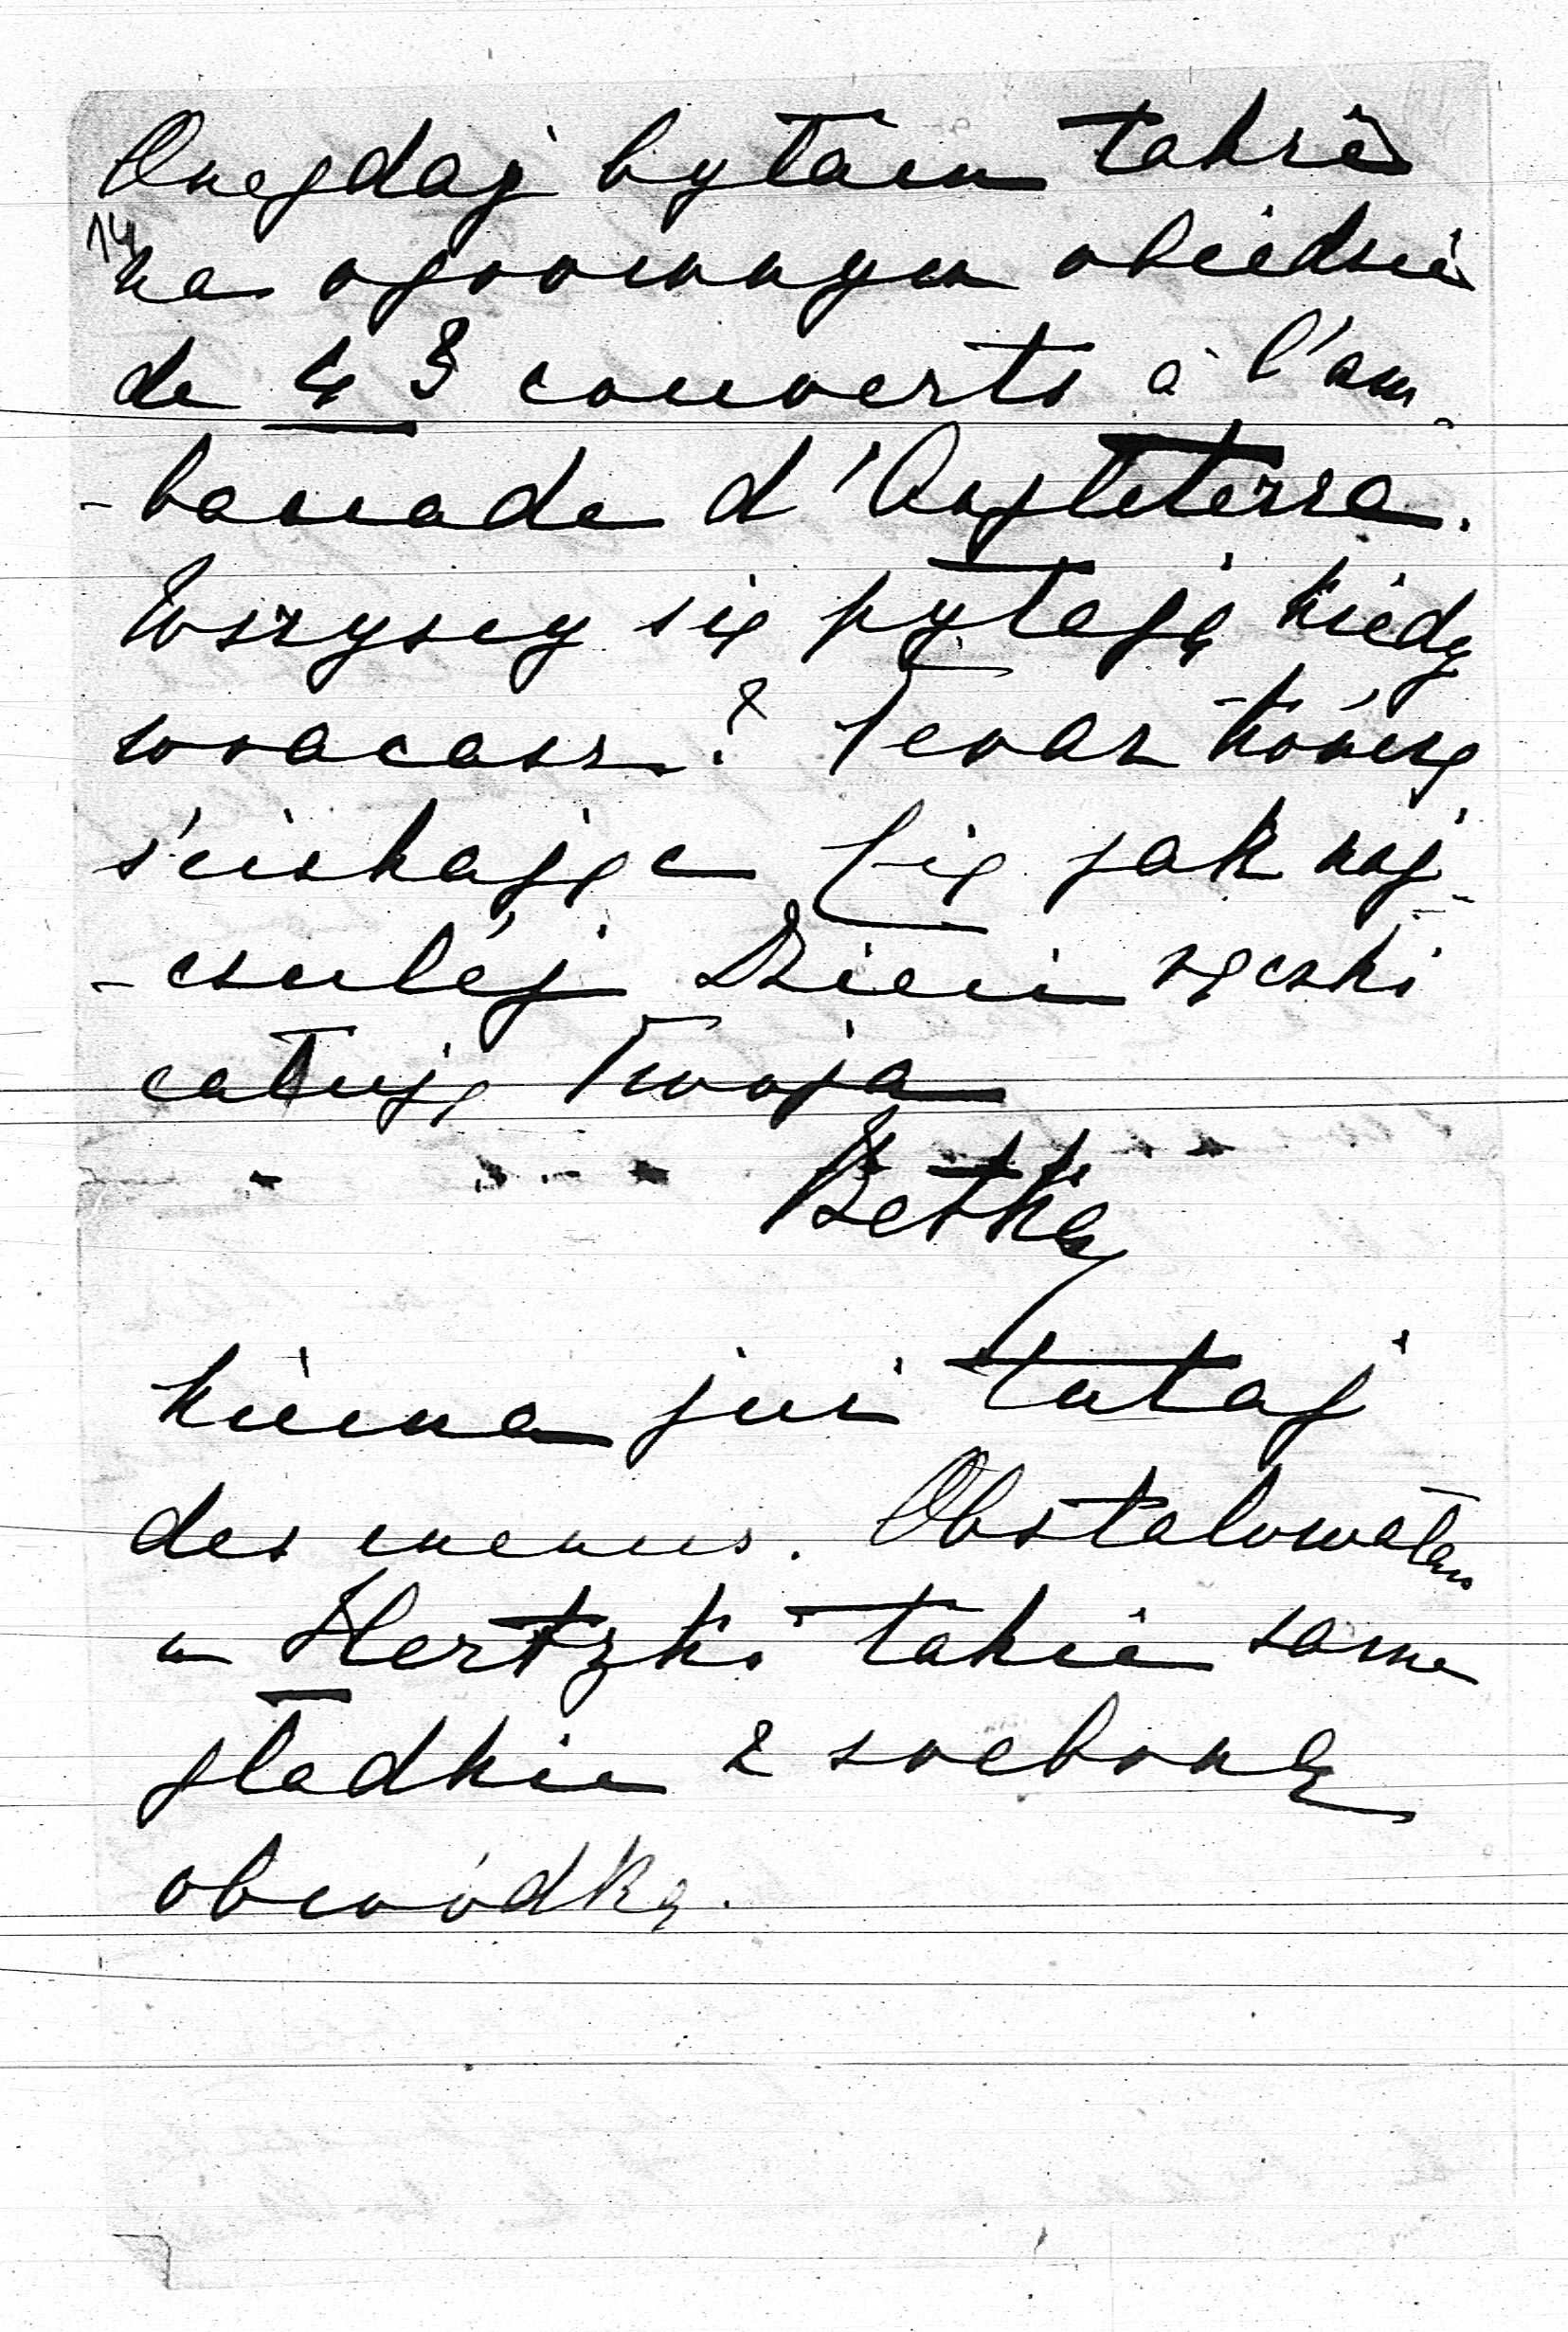 Onegdaj byłam także
14
na ogromnym obiedzie
de 43 couverts à l'am-
-bassade d'Angleterre.
Wszyscy się pytają kiedy
wracasz? Teraz kończę
ściskając Cię jak naj-
-czulej Dzieci rączki
całuję Twoja
Betka
niema już tutaj
des menus. Obstalowałam
u Hertzki takie same
gładkie z srebrną
obwódką.